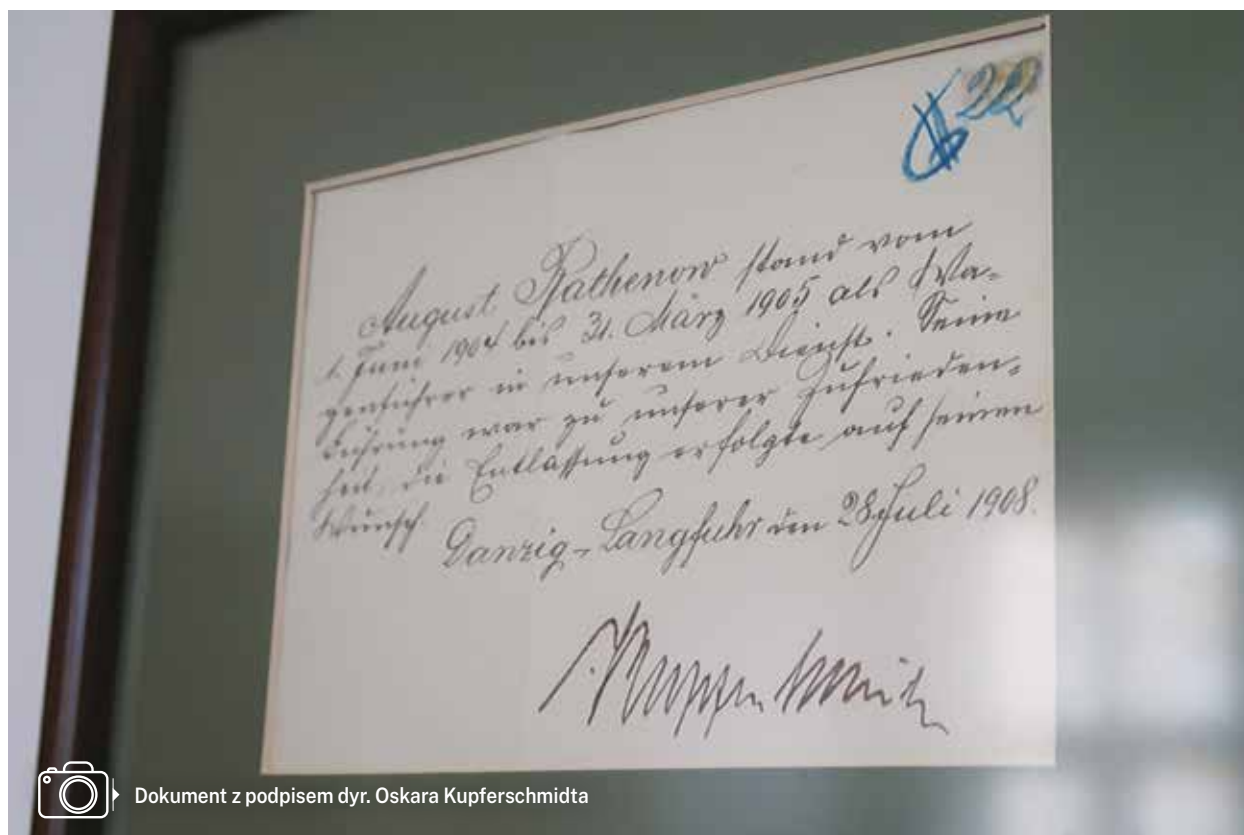 22
August Rathenow stand vom
1. Juni 1904 bis 31. März 1905 als Wa-
genführer in unserem Dienst. Seine
Führung war zu unserer Zufrieden-
heit, die Entlassung erfolgte auf seinen
Wunsch.
Danzig-Langfuhr den 28 Juli 1908.
Kupferschmidt
Dokument z podpisem dyr. Oskara Kupferschmidta